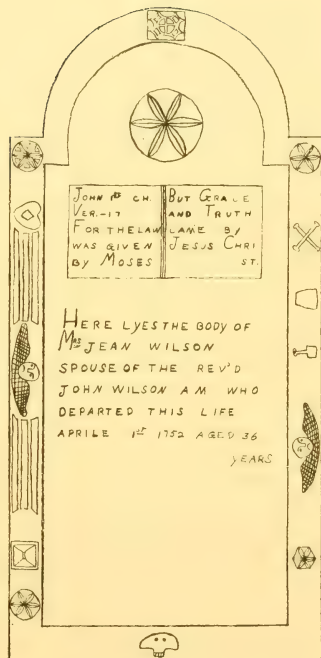 JOHN 1st CH.
VER.-17
FOR THELAW
WAS GIVEN
BY MOSES
BUT GRACE
AND TRUTH
CAME BY
JESUS CHRI
ST.
HERE LYESTHE BODY OF
Mrs JEAN WILSON
SPOUSE OF THE REV'D
JOHN WILSON A M WHO
DEPARTED THIS LIFE
APRILE 1st 1752 AGED 36
YEARS